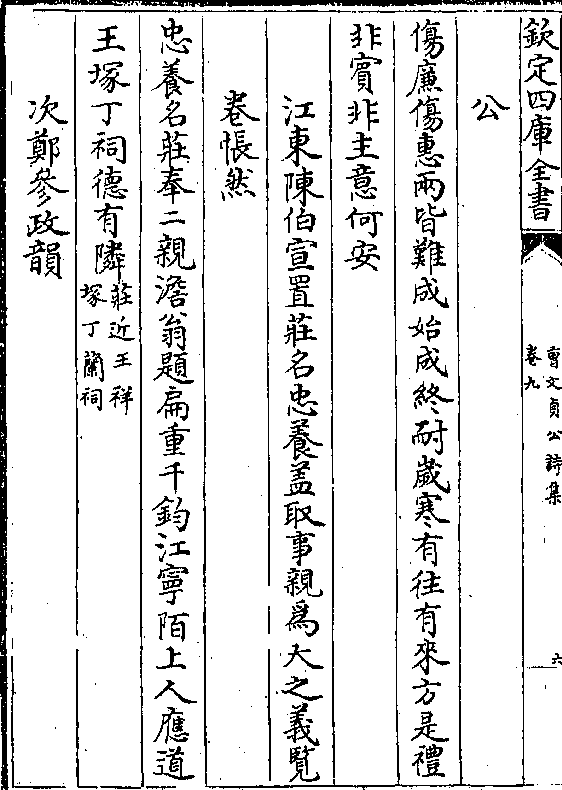 欽定四庫全書
曹文貞公詩集
卷九
六
公
傷廉傷惠兩皆難成始成終耐歲寒有往有來方是禮
非賓非主意何安
江東陳伯宣置莊名忠養盖取事親爲大之義覧
卷悵然
忠養名莊奉二親澹翁題扁重千鈞江寧陌上人應道
王塚丁祠德有隣莊近王祥
塚丁蘭祠
次鄭參政韻